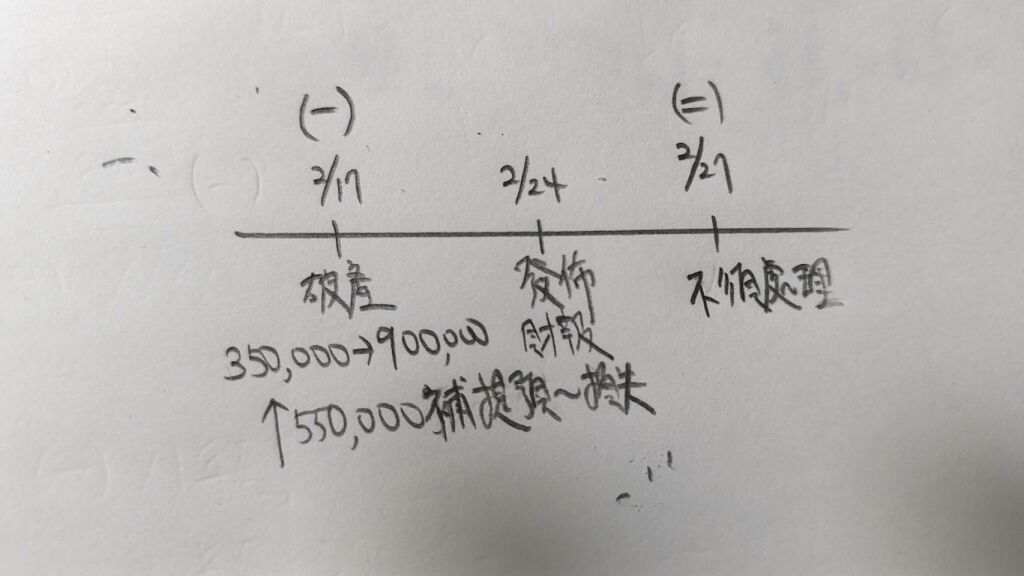 (一) (二)
一、 2/17 2/24 2/27
破產 發佈 不須處理
350,000→900,000 財報
↑550,000補提預~損失